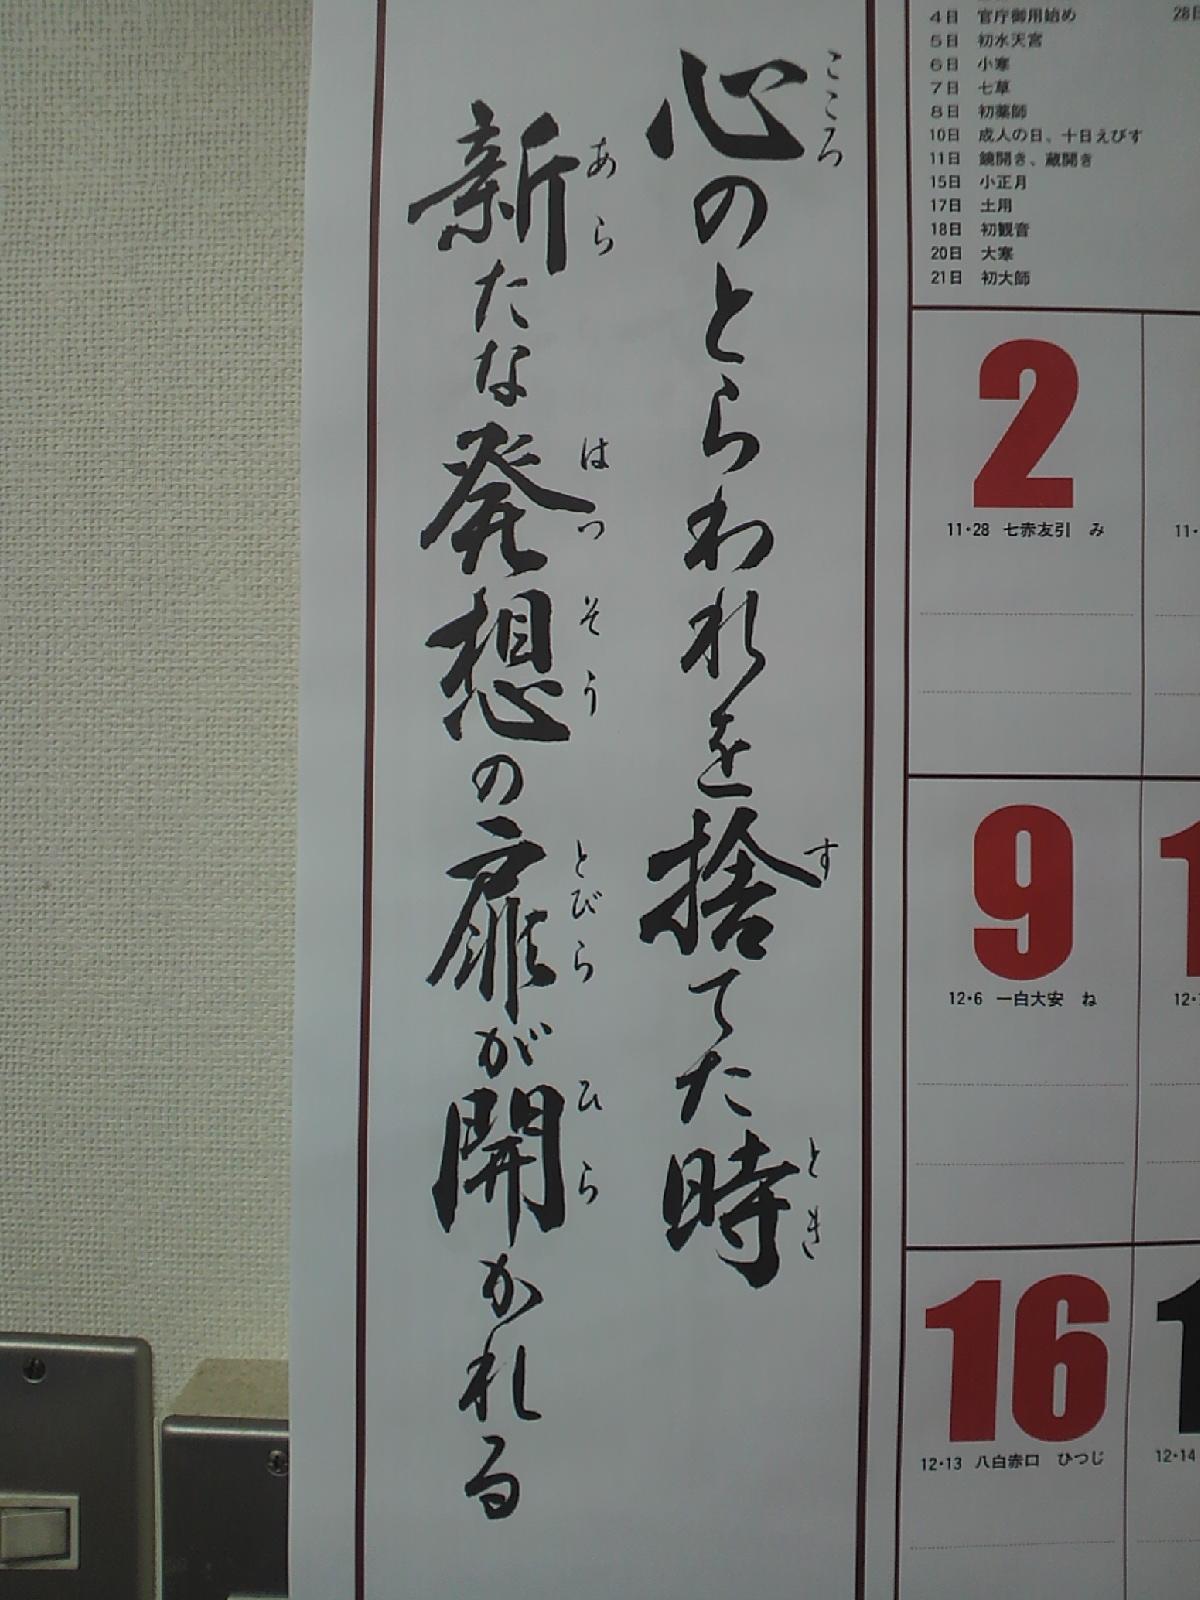 心のとらわれを捨てた時
こころ
す
とき
新たな発想の扉が開かれる
あら
はっそう
とびら
ひら
4日 官庁御用始め
5日 初水天宮
6日 小寒
7日 七草
8日 初薬師
10日 成人の日、十日えびす
11日 鏡開き、蔵開き
15日 小正月
17日 土用
18日 初観音
20日 大寒
21日 初大師
28日
2
11・28 七赤友引 み
11・
9
12・6 一白大安 ね
12・7
16
12・13 八白赤口 ひつじ
12・14